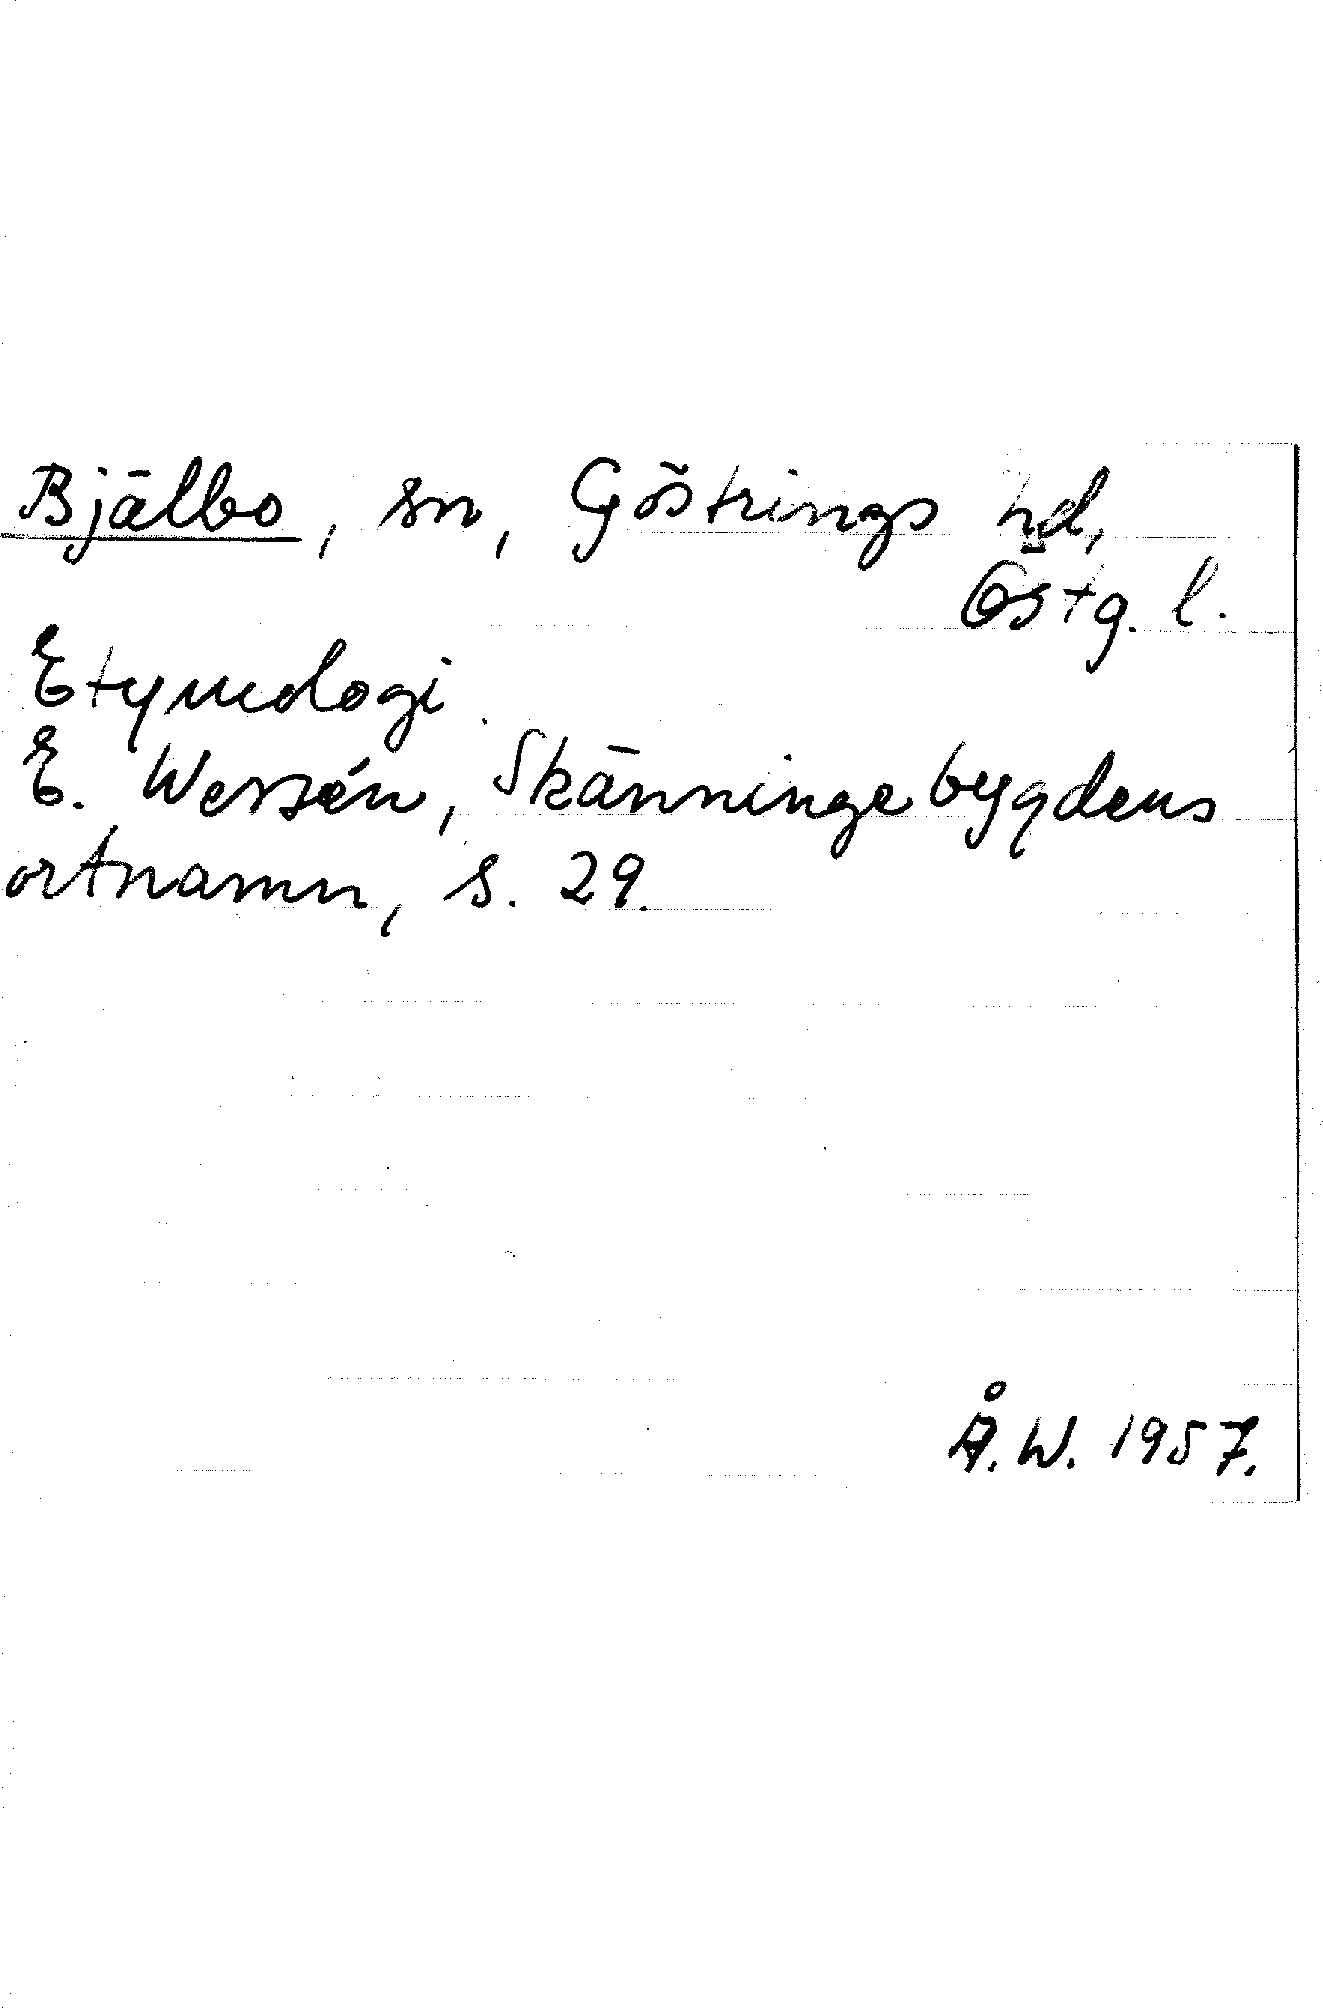 Bjälbo, sn, Göstrings hd,
Östg. l.
Etymologi.
E. Wessén, Skänningebygdens
ortnamn, s. 29.
Å.W. 1957.